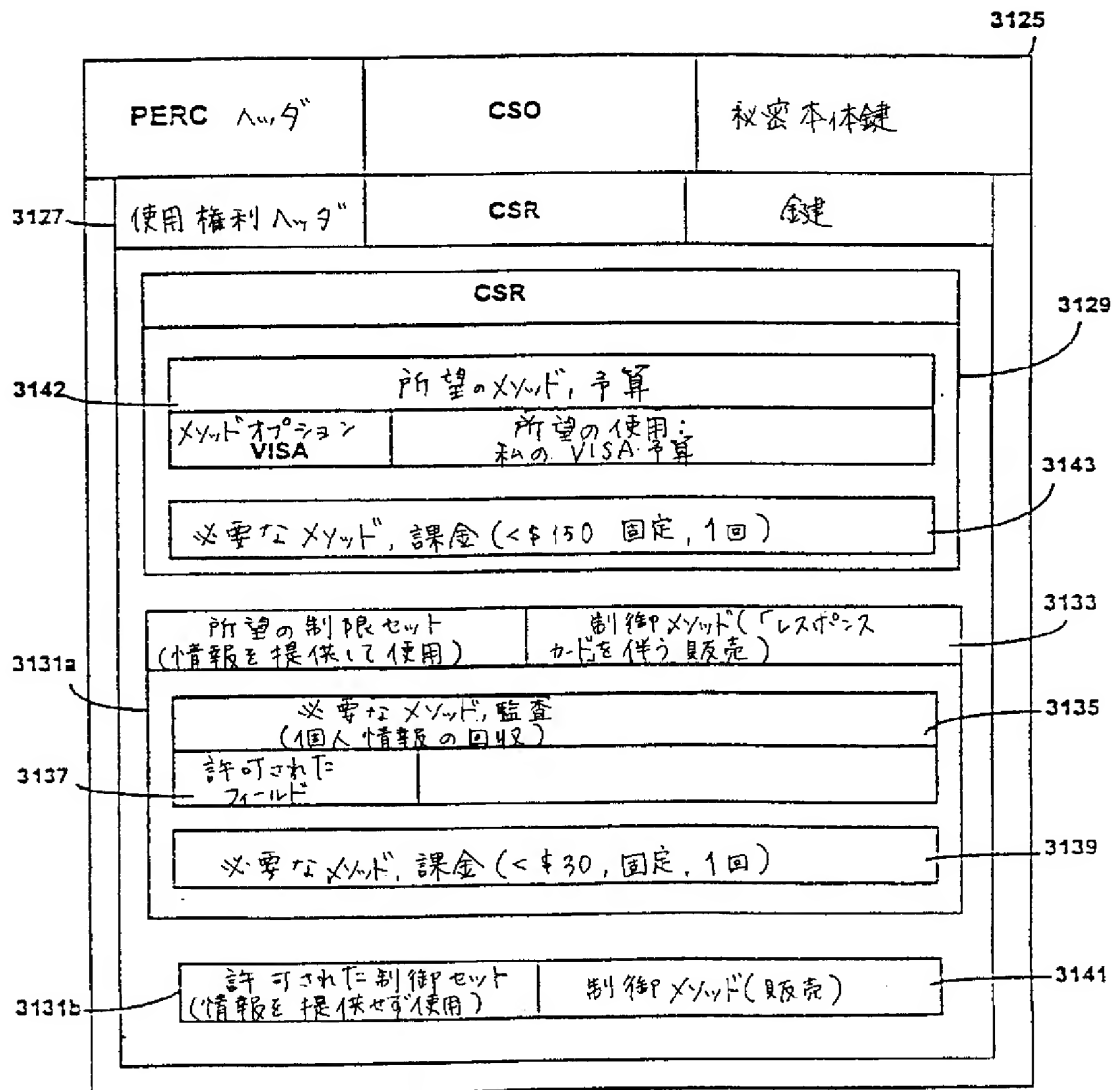 3125
PERC ヘッダ
CSO
秘密本体鍵
3127
使用権利ヘッダ
CSR
鍵
CSR
3129
3142
所望のメソッド, 予算
メソッドオプション
VISA
所望の使用:
私の VISA 予算
3143
必要なメソッド, 課金 (<$150 固定, 1回)
所望の制限セット
(情報を提供して使用)
制御メソッド(「レスポンス
カード」を伴う販売)
3133
3131a
必要なメソッド, 監査
(個人情報の回収)
3135
3137
許可された
フィールド
必要なメソッド, 課金 (<$30, 固定, 1回)
3139
許可された制御セット
(情報を提供せず使用)
制御メソッド(販売)
3141
3131b